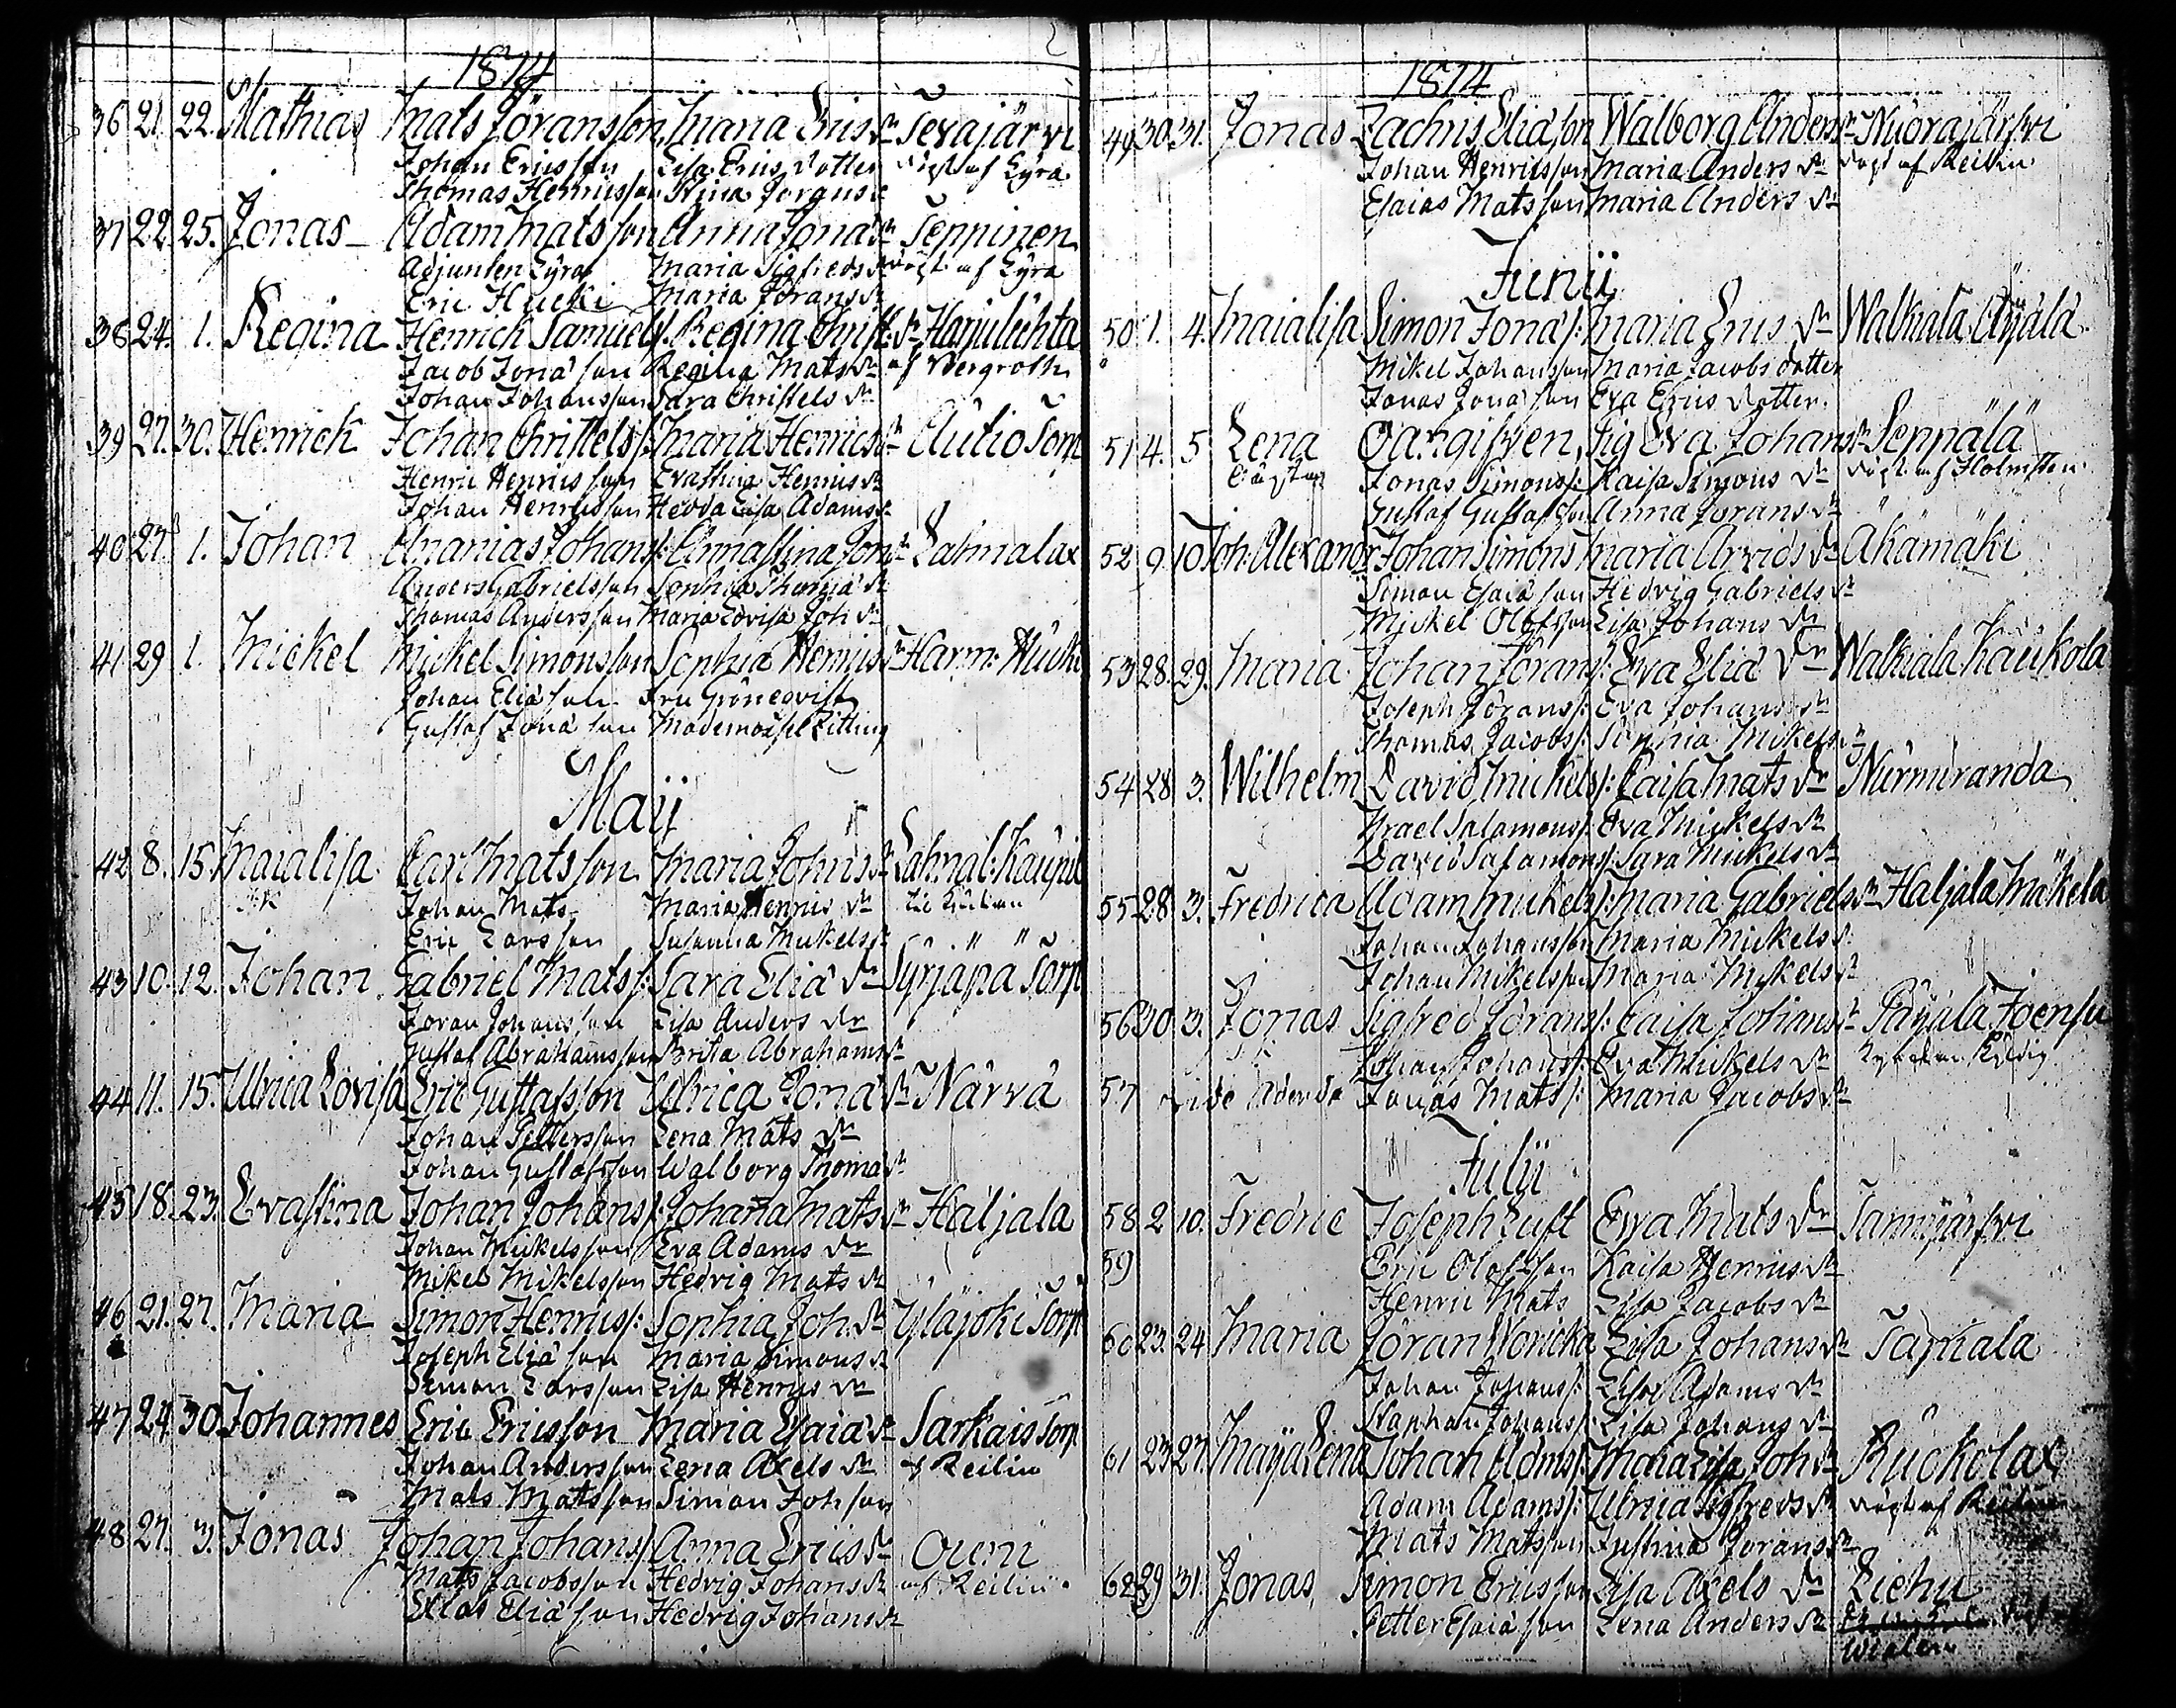 1814
36 21. 22. Mathias Mats Jöransson Maria Erics dr Sevajärvi
Johan Ericsson Lisa Erics dotter döpt af Lyra
Thomas Henricsson Stina
37 22. 25. Jonas Adam Matsson Anna Jona dr Seppinen
Adjuncten Lyra Maria Sigfreds dr döpt af Lyra
Eric Hucki Maria Jörans dr
38 24. 1. Regina Henrich Samuels: Regina Christ: dr Harjulechta
Jacob Jona'son Regina Mats dr af Bergroth
Johan Johansson Sara Christels dr
39 27. 30. Henrich Johan Christels: Maria Henrics dr Autio Torp
Henric Henricsson Evastina Henrics dr
Johan Henricsson Hedda Lisa Adams dr
40 27. 1. Johan Ananias Johans: Annastina Jon dr Lahmalax
Anders Gabrielsson Sophia Thoma' dr
Thomas Andersson Maria Lovisa Joh dr
41 29 1. Mickel Mickel Simonsson Sophia Henrics dr Harm: Hucki
Johan Elia'son Fru Grönqvist
Gustaf Jona'son Mademoisel Zitting
Maij
42 8. 15. Maialisa Carl Matsson Maria Johns dr Lahnal: Kaupi
Johan Mats Maria Henrics dr
Eric Larsson Susanna Mickels dr
43 10. 12. Johan Gabriel Mats: Sara Elia' dr Syrjäpä Torp
Jöran Johansson Lisa Anders dr
Gustaf Abrahamsson Brita Abrahams dr
44 11. 15. Ulrica Lovisa Eric Gustafsson Ulrica Jona' dr Närvä
Johan Pettersson Lena Mats dr
Johan Gustafsson Walborg Thoma' dr
45 18. 23. Evastina Johan Johans: Johana Mats dr Haljala
Johan Mickelsson Eva Adams dr
Mikel Mikelsson Hedvig Mats dr
46 21. 27. Maria Simon Henrics: Sophia Joh. dr Yläjoki Torp
Joseph Elia'son Maria Simons dr
Simon Larsson Lisa Henrics dr
47 24 30 Johannes Eric Ericsson Maria Esaia' dr Sarkais Torp
Johan Andersson Lena Axels dr af Reilin
Mats Matsson Simon Johson
48 27. 3. Jonas Johan Johans: Anna Erics dr Ouni
Mats Jacobsson Hedvig Johans dr af Reilin
Elias Elia'son Hedvig Johans dr
1814
49 30 31. Jonas Zachris Elia'son Walborg Anders dr Nuorajärfvi
Johan Henricsson Maria Anders dr döpt af Reilin
Esaias Matsson Maria Anders dr
Junii
50 1. 4. Maialisa Simon Jona': Maria Erics dr Walkiala Äijälä
Mikel Johansson Maria Jacobs dotter
Jonas Jona'son Eva Erics dotter.
51 4. 5 Lena Oangifven, Pig Eva Johans dr Seppälä
Oägta Jonas Simons: Kaisa Simons dr döpt af Holmsten
Gustaf Gustafson Anna Jörans dr
52 9. 10 Joh: Alexand: Johan Simons Maria Arvids dr Äkämäki
Simon Esaia'son Hedvig Gabriels dr
Mickel Olofsson Lisa Johans dr
53 28. 29. Maria Johan Jörans: Eva Elia' dr Walkiala Kaukola
Joseph Jörans: Eva Johans dr
Thomas Jacobs: Sophia Mickels dr
54 28 3. Wilhelm David Mickels: Caisa Mats dr Nurmiranda
Israel Salamons: Eva Mickels dr
David Salamons: Sara Mickels dr
55 28 3. Fredrica Adam Mickels: Maria Gabriels dr Haljala Mäkelä
Johan Johansson Maria Mickels dr
Johan Mikelsson Maria Mickels dr
56 30 3. Jonas Sigfred Jörans: Caisa Johans dr Päijälä Joensu
Johan Johans: Eva Mickels dr
57 vide Adenda Jonas Mats: Maria Jacobs dr
Julii
58 2 10. Fredric Joseph Luft Ewa Mats dr Tammijärfvi
59 Eric Olofsson Kaisa Henrics dr
Henric Mats Lisa Jacobs dr
60 23. 24 Maria Jöran Woricka Lisa Johans dr Sapiala
Johan Johans: Lisa Adams dr
Staphan Johans: Lisa Johans dr
61 23 27. Maija Lena Johan Adams: Maria Lisa Joh dr Ruokolax
Adam Adams: Ulrica Sigfreds dr döpt af Reilin
Mats Matsson Justina Jörans dr
62 29 31. Jonas, Simon Ericsson Lisa Axels dr Liehu
Petter Esaia'son Lena Anders dr
Wialen